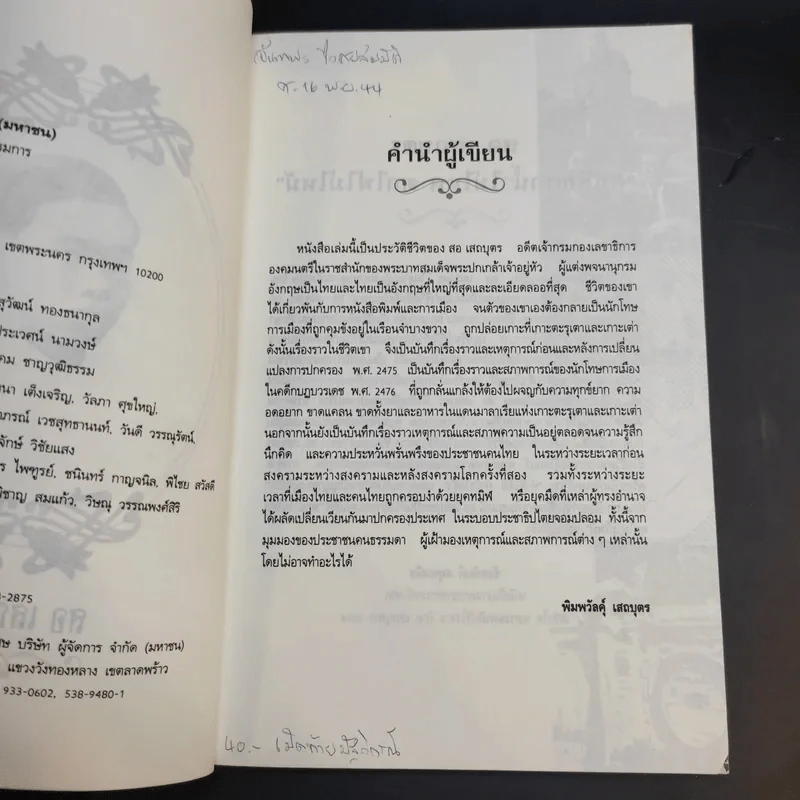 (มหาชน)
รมการ
เขตพระนคร กรุงเทพฯ 10200
สุวัฒน์ ทองธนากุล
ประเวศน์ นามวงษ์
คม ชาญวุฒิธรรม
นา เต็งเจริญ, วัลภา ศุขใหญ่,
าภรณ์ เวชสุทธานนท์, วันดี วรรณุรัตน์,
จักษ์ วิชัยแสง
ร ไพฑูรย์, ชนินทร์ กาญจนิล, พิไชย สวัสดี
พิชาญ สมแก้ว, วิษณุ วรรณพงศ์สิริ
-2875
ษ บริษัท ผู้จัดการ จำกัด (มหาชน)
แขวงวังทองหลาง เขตลาดพร้าว
933-0602, 538-9480-1
ศ. 16 พ.ย. 44
คำนำผู้เขียน
หนังสือเล่มนี้เป็นประวัติชีวิตของ สอ เสถบุตร อดีตเจ้ากรมกองเลขาธิการ
องคมนตรีในราชสำนักของพระบาทสมเด็จพระปกเกล้าเจ้าอยู่หัว ผู้แต่งพจนานุกรม
อังกฤษเป็นไทยและไทยเป็นอังกฤษที่ใหญ่ที่สุดและละเอียดลออที่สุด ชีวิตของเขา
ได้เกี่ยวพันกับการหนังสือพิมพ์และการเมือง จนตัวของเขาเองต้องกลายเป็นนักโทษ
การเมืองที่ถูกคุมขังอยู่ในเรือนจำบางขวาง ถูกปล่อยเกาะที่เกาะตะรุเตาและเกาะเต่า
ดังนั้นเรื่องราวในชีวิตเขา จึงเป็นบันทึกเรื่องราวและเหตุการณ์ก่อนและหลังการเปลี่ยน
แปลงการปกครอง พ.ศ. 2475 เป็นบันทึกเรื่องราวและสภาพการณ์ของนักโทษการเมือง
ในคดีกบฏบวรเดช พ.ศ. 2476 ที่ถูกกลั่นแกล้งให้ต้องไปผจญกับความทุกข์ยาก ความ
อดอยาก ขาดแคลน ขาดทั้งยาและอาหารในแดนมาลาเรียแห่งเกาะตะรุเตาและเกาะเต่า
นอกจากนั้นยังเป็นบันทึกเรื่องราวเหตุการณ์และสภาพความเป็นอยู่ตลอดจนความรู้สึก
นึกคิด และความประหวั่นพรั่นพรึงของประชาชนคนไทย ในระหว่างระยะเวลาก่อน
สงครามระหว่างสงครามและหลังสงครามโลกครั้งที่สอง รวมทั้งระหว่างระยะ
เวลาที่เมืองไทยและคนไทยถูกครอบงำด้วยยุคทมิฬ หรือยุคมืดที่เหล่าผู้ทรงอำนาจ
ได้ผลัดเปลี่ยนเวียนกันมาปกครองประเทศ ในระบอบประชาธิปไตยจอมปลอม ทั้งนี้จาก
มุมมองของประชาชนคนธรรมดา ผู้เฝ้ามองเหตุการณ์และสภาพการณ์ต่าง ๆ เหล่านั้น
โดยไม่อาจทำอะไรได้
พิมพวัลคุ์ เสถบุตร
40.-